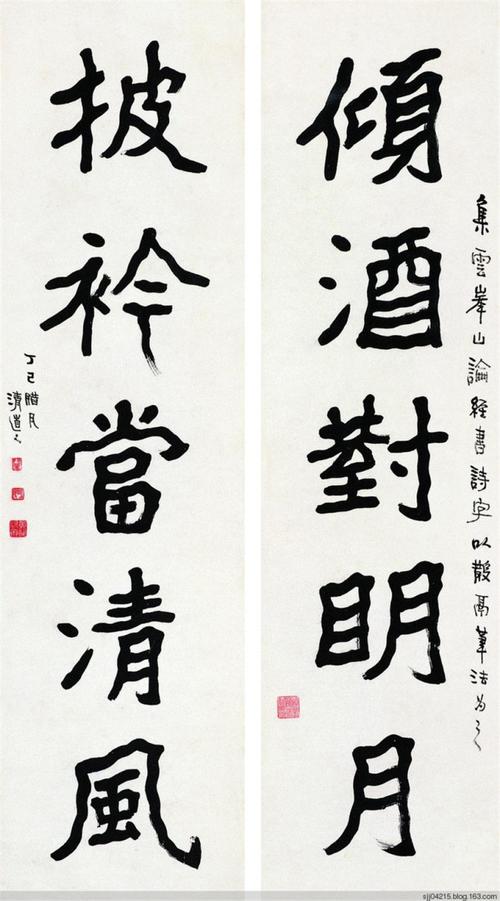 傾酒對明月
集雲峯山論經書詩字以散鬲筆法為之
披衿當清風
丁巳臘月
清道人
sjj04215.blog.163.com